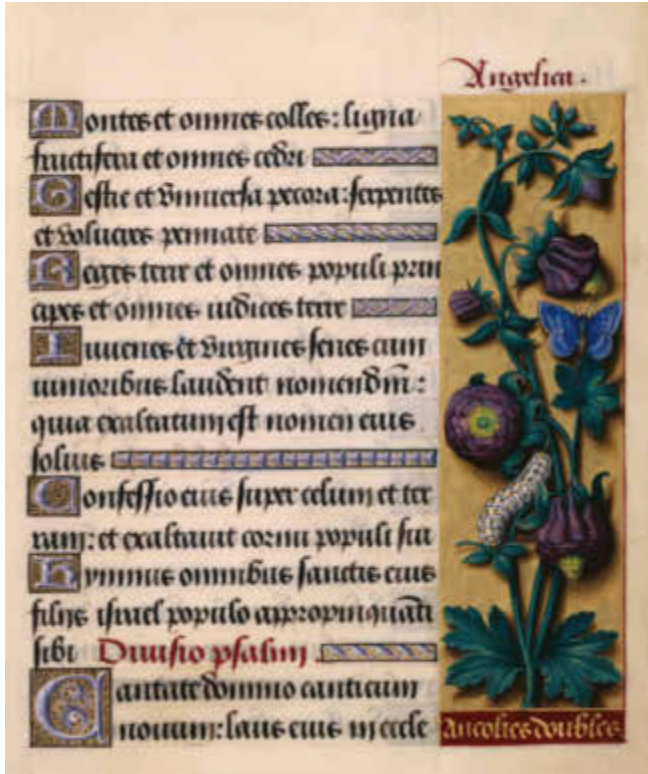 Angelica.
Montes et omnes colles: ligna
fructifera et omnes cedri
Bestie et universa pecora: serpentes
et volucres pennate
Reges terre et omnes populi prin
cipes et omnes iudices terre
Iuvenes et virgines senes cum
iunioribus laudent nomen dñi:
quia exaltatum est nomen eius
solius
Confessio eius super celum et ter
ram: et exaltavit cornu populi sui
Hymnus omnibus sanctis eius
filiis israel populo appropinquāti
sibi Divisio psalmi
Cantate domino canticum
novum: laus eius in eccle
Ancolies doubles